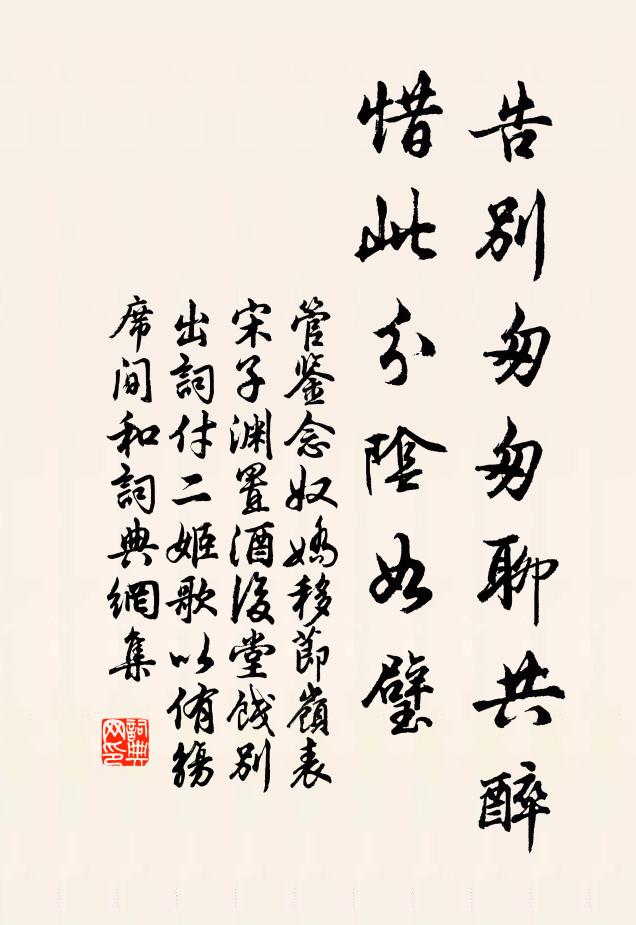 告別匆匆聊共醉
惜此分陰如璧
管鑒念奴嬌移節嶺表
宋子淵置酒後堂餞別
出詞付二姬歌以侑觴
席间和詞典網集
詞典网印